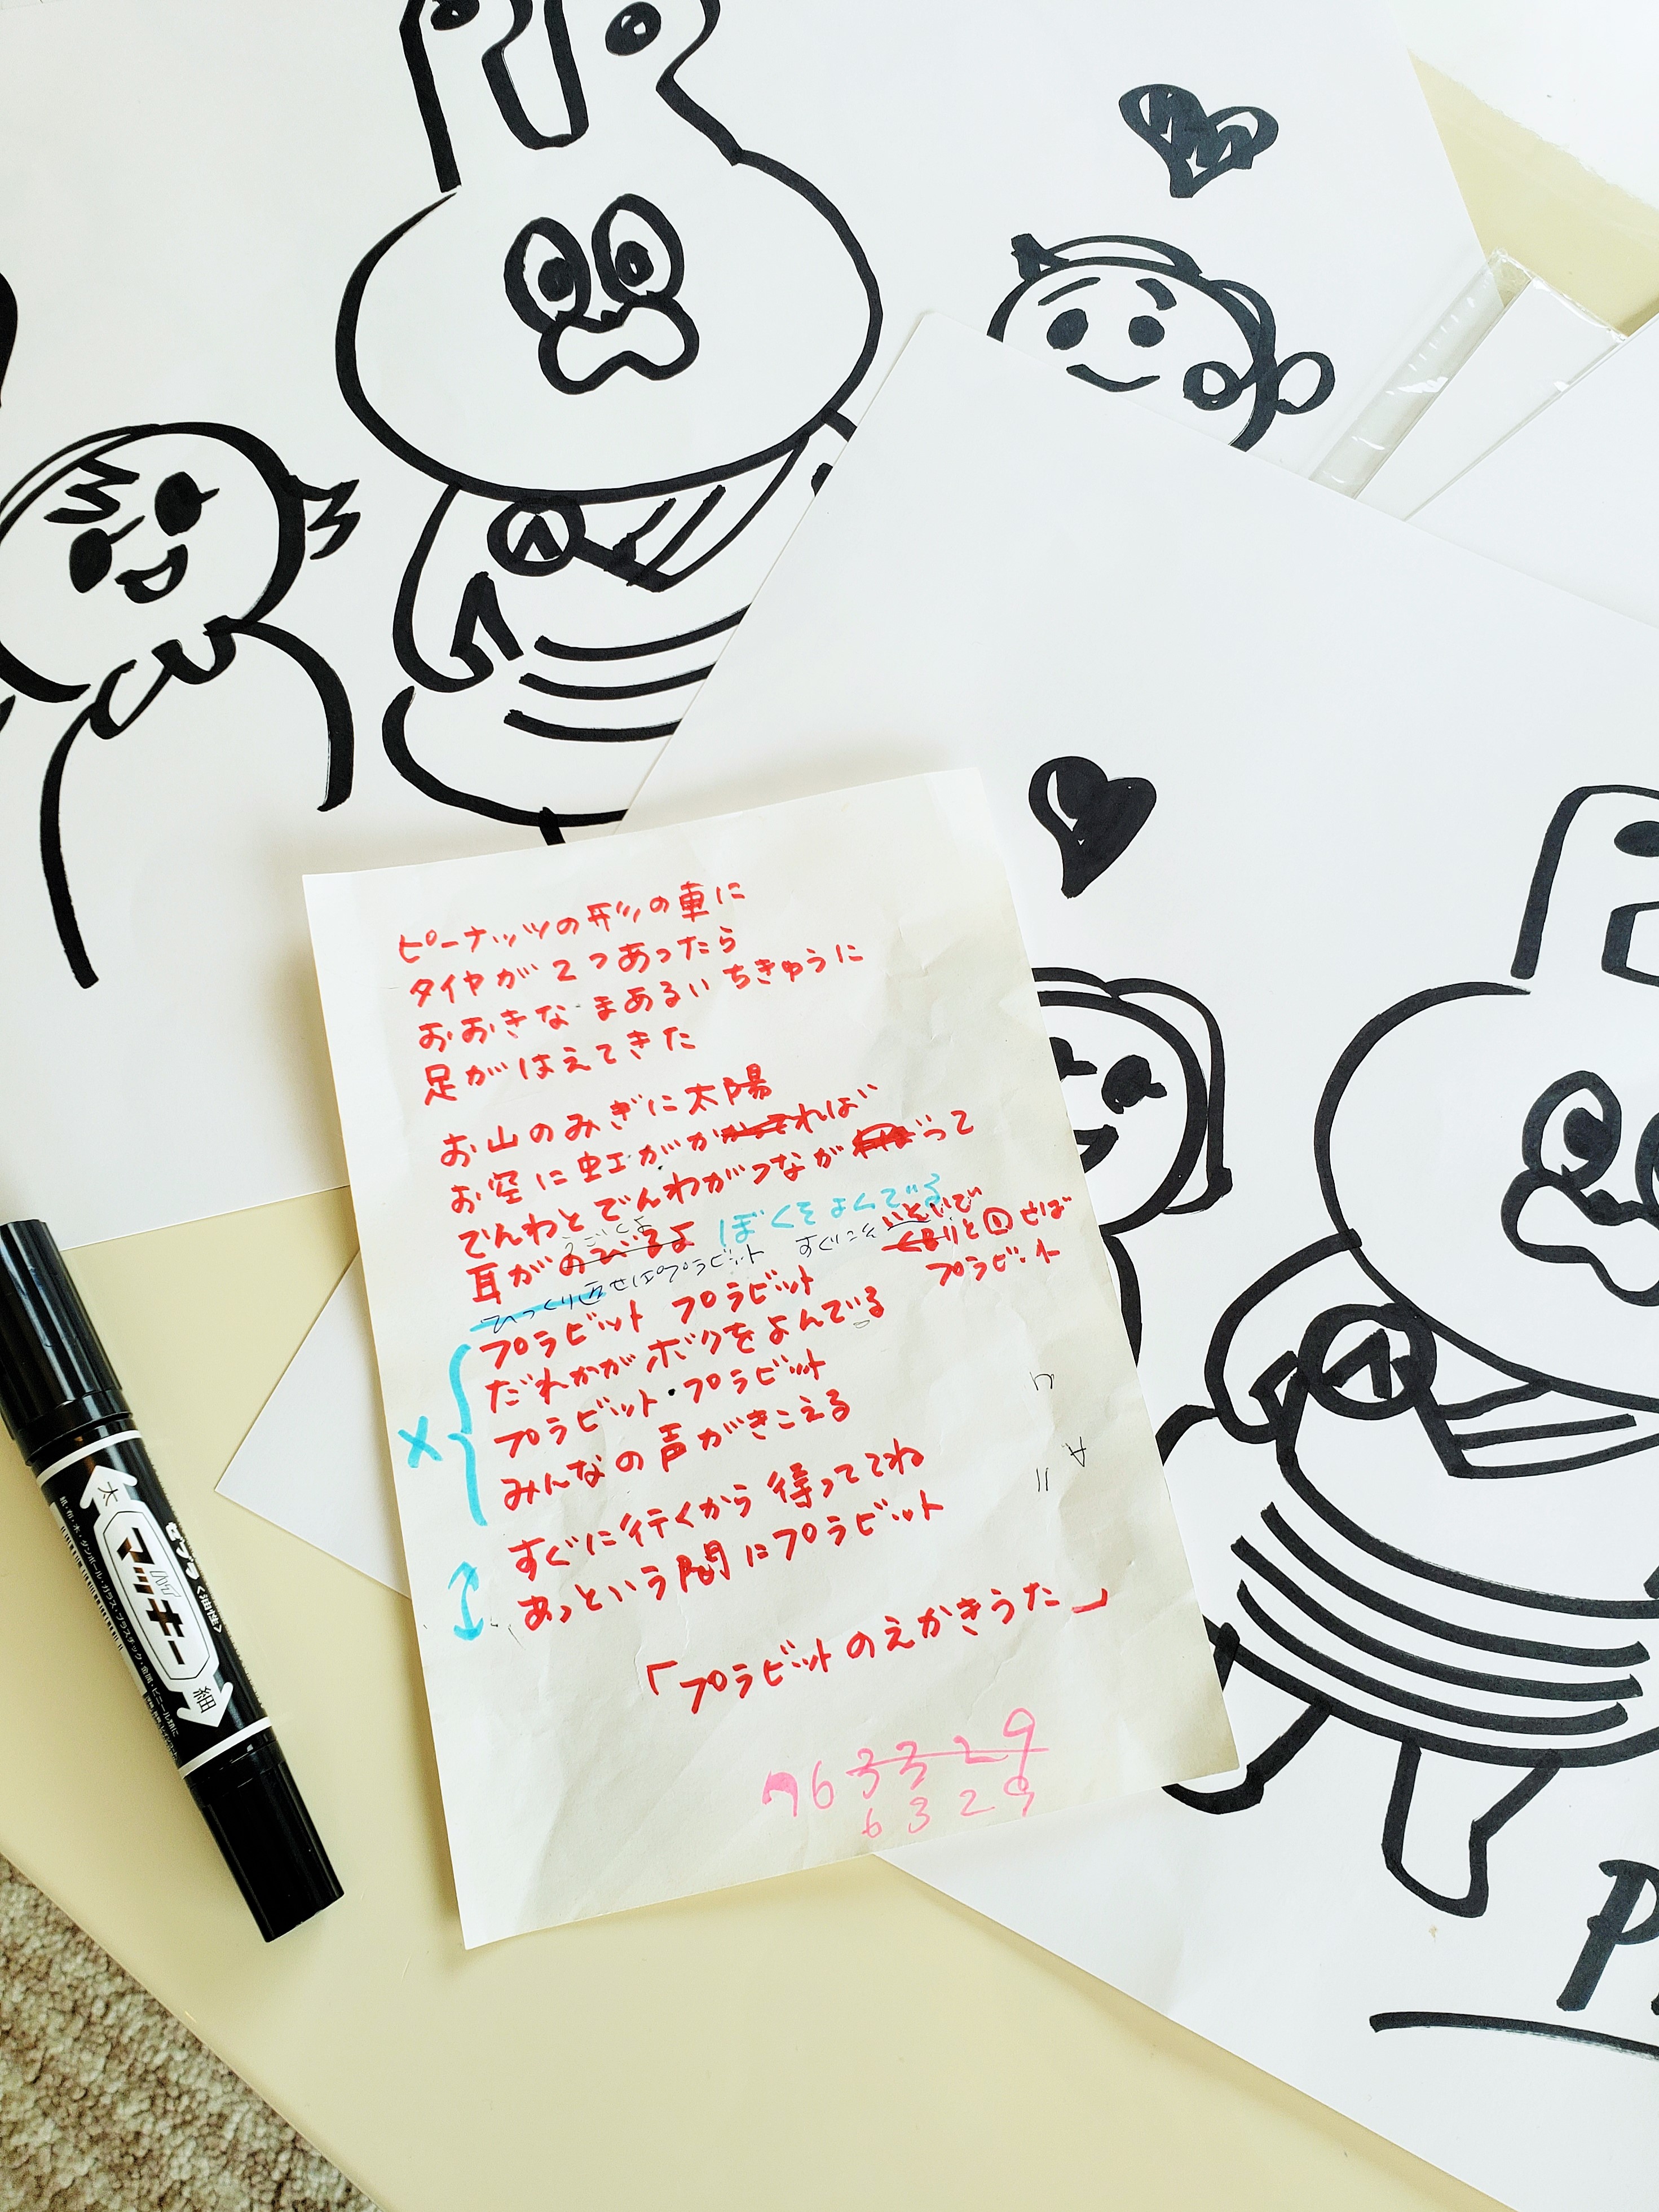 ピーナッツの形の車に
タイヤが2つあったら
おおきな まあるい ちきゅうに
足がはえてきた
お山のみぎに太陽
お空に虹がかかれば
でんわとでんわがつながって
耳がのびるよ ぼくをよんでる
うごくよ
ひっくり返せばプラビット
プラビット
プラビット プラビット
だれかがボクをよんでいる
プラビット・プラビット
みんなの声がきこえる
すぐに行くから 待っててね
あっという間にプラビット
「プラビットのえかきうた」
763329
6329
太
ハイ
マッキー
細